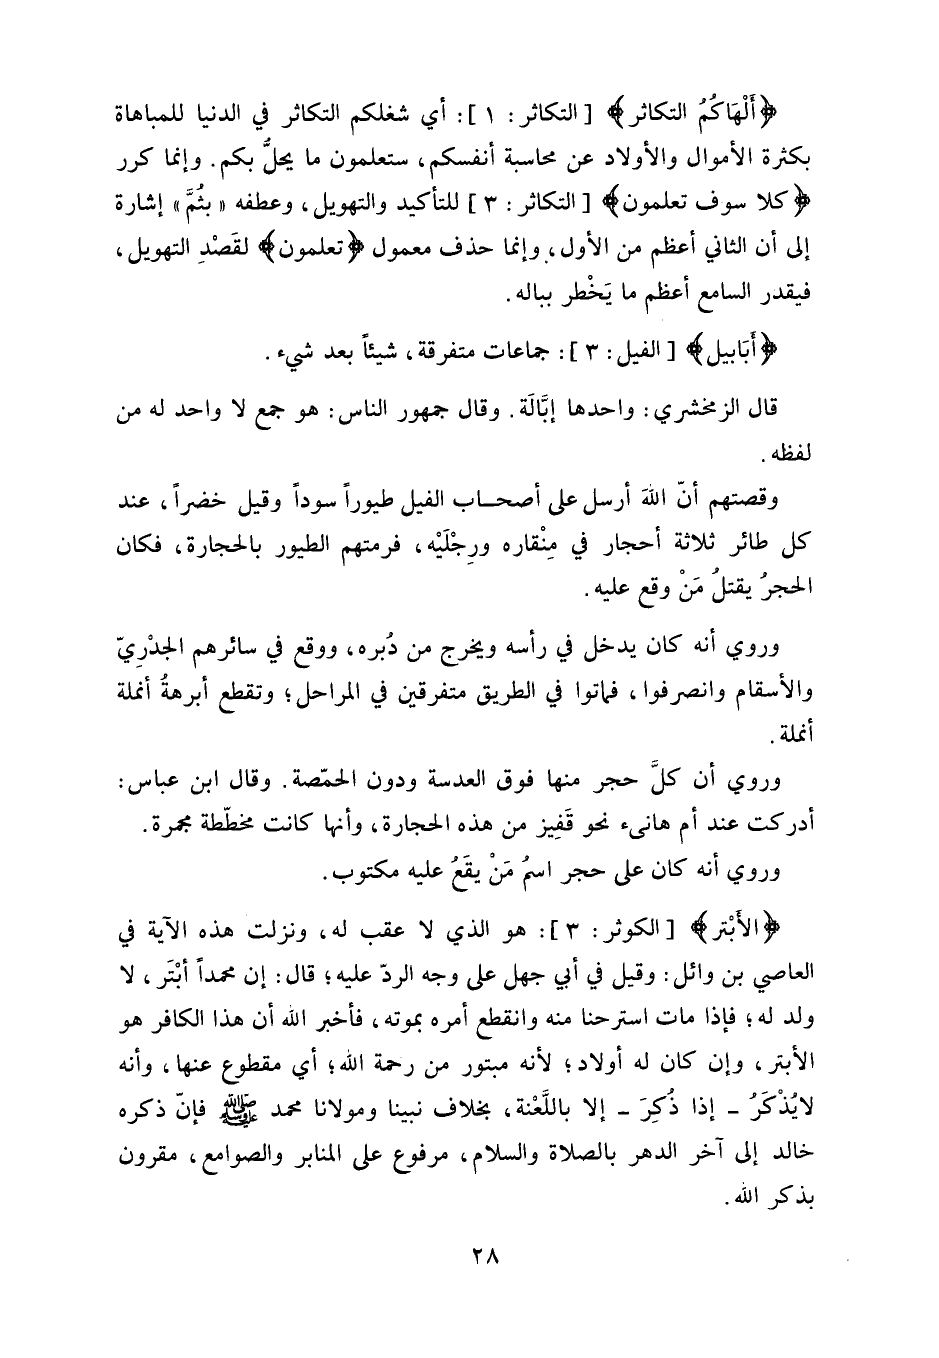 ﴿أَلْهَاكُمُ التكاثر﴾ [ التكاثر: ١ ]: أي شغلكم التكاثر في الدنيا للمباهاة
بكثرة الأموال والأولاد عن محاسبة أنفسكم، ستعلمون ما يحلُّ بكم. وإنما كرر
﴿كلا سوف تعلمون﴾ [ التكاثر: ٣ ] للتأكيد والتهويل، وعطفه « بثُمَّ » إشارة
إلى أن الثاني أعظم من الأول، وإنما حذف معمول ﴿تعلمون﴾ لقَصْدِ التهويل،
فيقدر السامع أعظم ما يَخْطر بباله.
﴿أَبَابيل﴾ [ الفيل: ٣ ]: جماعات متفرقة، شيئاً بعد شيء.
قال الزمخشري: واحدها إبَّالَة. وقال جمهور الناس: هو جمع لا واحد له من
لفظه.
وقصتهم أنّ اللهَ أرسل على أصحاب الفيل طيوراً سوداً وقيل خضراً، عند
كل طائر ثلاثة أحجار في مِنْقاره ورِجْلَيْه، فرمتهم الطيور بالحجارة، فكان
الحجرُ يقتلُ مَنْ وقع عليه.
وروي أنه كان يدخل في رأسه ويخرج من دُبره، ووقع في سائرهم الجدْرِيّ
والأسقام وانصرفوا، فماتوا في الطريق متفرقين في المراحل؛ وتقطع أبرهةُ أنملة
أنملة.
وروي أن كلَّ حجر منها فوق العدسة ودون الحمّصة. وقال ابن عباس:
أدركت عند أم هانىء نحو قَفِيز من هذه الحجارة، وأنها كانت مخطّطة بحمرة.
وروي أنه كان على حجر اسمُ مَنْ يقَعُ عليه مكتوب.
﴿الأَبْتر﴾ [ الكوثر: ٣ ]: هو الذي لا عقب له، ونزلت هذه الآية في
العاصي بن وائل: وقيل في أبي جهل على وجه الردّ عليه؛ قال: إن محمداً أبْتَر، لا
ولد له؛ فإذا مات استرحنا منه وانقطع أمره بموته، فأخبر الله أن هذا الكافر هو
الأبتر، وإن كان له أولاد؛ لأنه مبتور من رحمة الله؛ أي مقطوع عنها، وأنه
لايُذْكَرُ - إذا ذُكِرَ - إلا باللَّعْنة، بخلاف نبينا ومولانا محمد ﷺ فإنّ ذكره
خالد إلى آخر الدهر بالصلاة والسلام، مرفوع على المنابر والصوامع، مقرون
بذكر الله.
٢٨